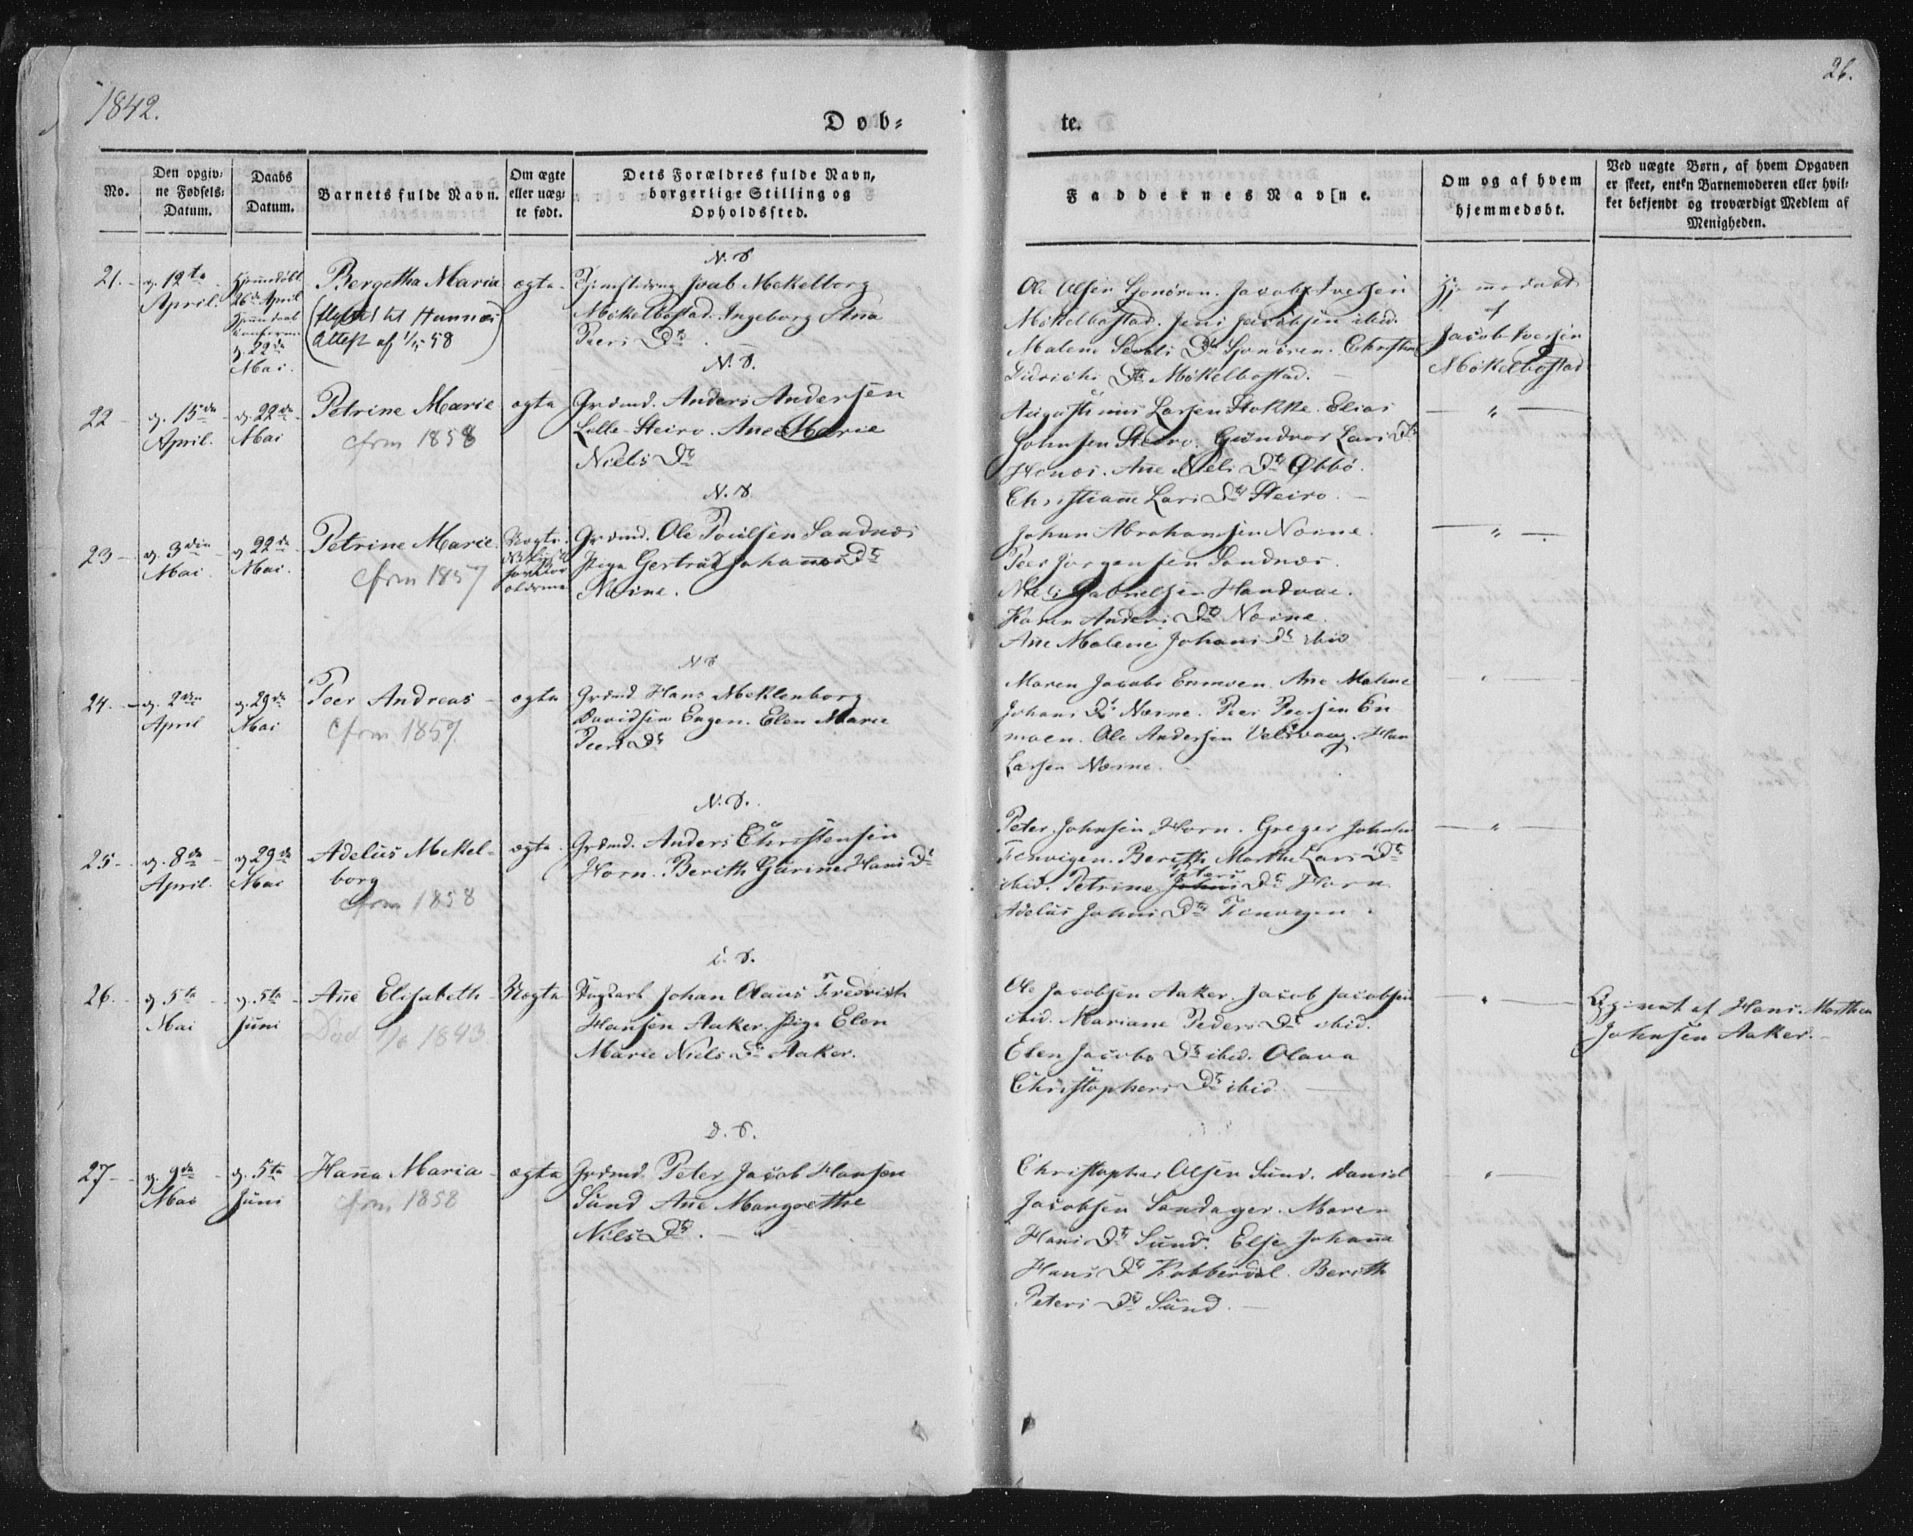 1842.
26.
Døb=
te.
No.
Den opgiv=
ne Fødsels=
Datum.
Daabs
Datum.
Barnets fulde Navn.
Om ægte
eller uæg=
te født.
Dets Forældres fulde Navn,
borgerlige Stilling og
Opholdssted.
Faddernes Navne.
Om og af hvem
hjemmedøbt.
Ved uægte Børn, af hvem Opgaven
er skeet, enten Barnemoderen eller hvil=
ket bekjendt og troværdigt Medlem af
Menigheden.
N. S
21.
12te
April.
Hjemmedøbt
26de April
29de
Mai.
Bergetha Maria
(flyttet til
Attest af 58)
ægte
Isaab Mekelborg
Møkelbostad. Ingeborg Ana
Peers Dtr
Ole Olsen Sjonøren. Jacob Iversen
Møkelbostad. Jens Jacobsen ibid.
Malene Dtr Sjonøren. Christine
Didrichs Dtr Møkelbostad.
Hjemmedøbt
af
Jacob Iversen
Møkelbostad
N. S.
22
15de
April.
22de
Mai
Petrine Marie
cfrm 1858
ægte
Grdmd. Anders Andersen
Lille Steiro. Ane Marie
Niels Dtr
Augustinus Larsen Stokke. Elias
Johnsen Steiro. Gundvor Lars Dtr
Ane Niels Dtr Øbbø.
Christiane Lars Dtr Steiro
"
N. S
23
3die
Mai.
22de
Mai.
Petrine Marie
cfrm 1857
Uægte
Grdmd. Ole Poulsen Sandnæs
Pige Gertrud Johannes Dtr
Nesne.
Johan Abrahamsen Nesne.
Peer Jørgensen Sandnæs.
Niels Gabrielsen Handnæs.
Karen Anders Dtr Nesne.
Ane Malene Johans Dtr ibid
"
N S
24.
2den
April
29de
Mai
Peer Andreas
cfrm 1857.
ægte
Grdmd Hans Meklenborg
Davidsen Engen. Elen Marie
Peers Dtr
Maren Jacobs Enmoen. Ane Malene
Johans Dtr Nesne. Peer Peersen En
moen. Ole Andersen Hans
Larsen Nesne.
"
N. S.
25
8de
April.
29de
Mai
Adelus Mekel-
borg
cfrm 1858
ægte
Grdmd. Anders Christensen
Horn. Berith Hans Dtr
Peter Johnsen Horn. Greger Johnsen
Berith Marthe Lars Dtr
ibid. Petrine Johns Peters Dtr Horn
Adelus Johns Dtr
"
D. S.
26.
5te
Mai
5te
Juni
Ane Elisabeth
Død 1/6 1843
Uægte
Johan Olaus Fredrich
Hansen Aaker. Pige Elen
Marie Niels Dtr Aaker.
Ole Jacobsen Aaker. Jacob Jacobsen
ibid. Mariane Peders Dtr ibid.
Elen Jacobs Dtr ibid. Olava
Christophers Dtr ibid.
"
Opgivet af Hans Morthen
Johnsen Aaker.
D. S.
27
9de
Mai
5te
Juni
Hana Maria
cfrm 1858
ægte
Grdmd. Peter Jacob Hansen
Sund Ane Margrethe
Nils Dtr.
Christopher Olsen Sund. Daniel
Jacobsen Sandager. Maren
Hans Dtr Sund. Else Johana
Hans Dtr Kobberdal. Berith
Peters Dtr Sund.
"